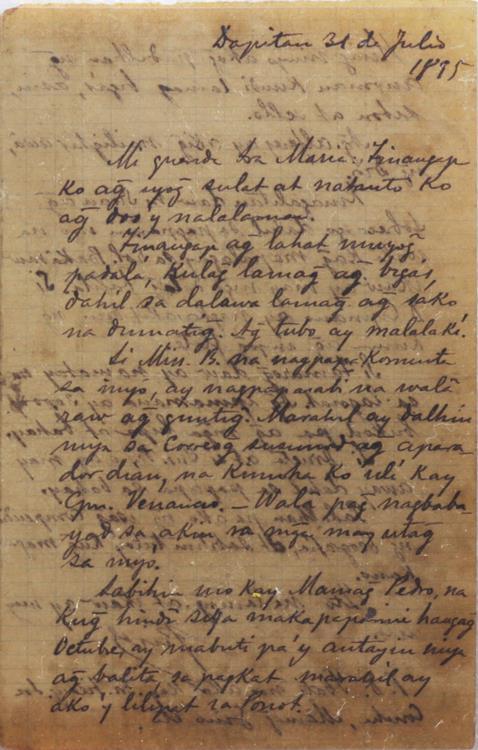 Dapitan 31 de Julio
1895
Mi querida hra Maria: Tinangap
ko ag̃ iyog̃ sulat at natanto ko
ag̃ doo'y nalalaman.
Tinangap ag̃ lahat niniyog̃
padala, kulag̃ lamag̃ ag̃ bigas,
dahil sa dalawa lamag̃ ag̃ sako
na dumatig̃. Ag̃ tubo ay malalaki.
Si Miss B. na
sa inyo, ay nagpapasabi na wala
raw ag̃ guntig̃. Marahil ay dalhin
niya sa Correog̃ susunod ag̃ apara
dor dian, na kinuha ko uli kay
Gpn. Venancio. — Wala pag̃ nagbaba
yad sa akin sa mg̃a may utag̃
sa inyo.
Sabihin mo kay Mamag̃ Pedro, na
kug̃ hindi siya makapaparini hangag̃
Octubre, ay mabuti pa'y antayin niya
ag̃ balita, sapagkat marahil ay
ako'y lilipat sa